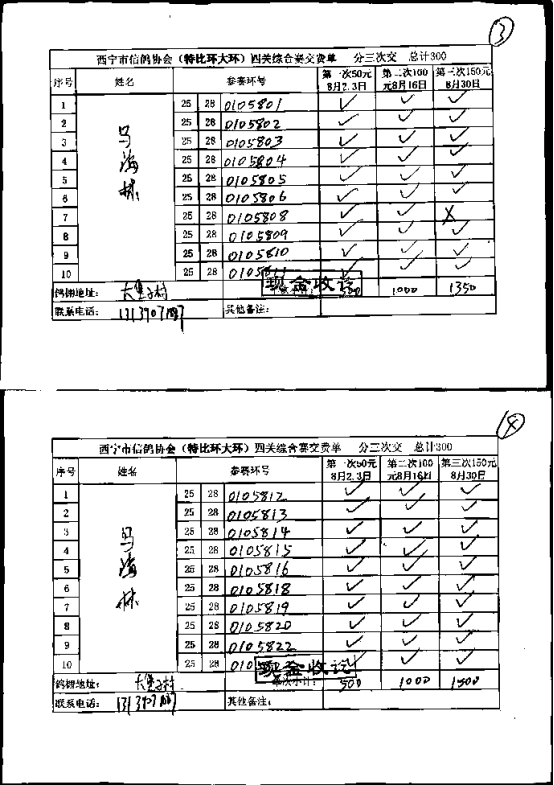 ③
西宁市信鸽协会（特比环大环）四关综合赛交费单 分三次交 总计300
序号 姓名 参赛环号 第一次50元8月2.3日 第二次100元8月16日 第三次150元8月30日
马海林
1 25 28 0105801 ✓ ✓ ✓
2 25 28 0105802 ✓ ✓ ✓
3 25 28 0105803 ✓ ✓ ✓
4 25 28 0105804 ✓ ✓ ✓
5 25 28 0105805 ✓ ✓ ✓
6 25 28 0105806 ✓ ✓ ✓
7 25 28 0105808 ✓ ✓ X
8 25 28 0105809 ✓ ✓ ✓
9 25 28 0105810 ✓ ✓ ✓
10 25 28 0105811 ✓ ✓ ✓
现金收讫
鸽棚地址： 大堡子村 1000 1350
联系电话： 其他备注：
西宁市信鸽协会（特比环大环）四关综合赛交费单 分三次交 总计300
序号 姓名 参赛环号 第一次50元8月2.3日 第二次100元8月16日 第三次150元8月30日
马海林
1 25 28 0105812 ✓ ✓ ✓
2 25 28 0105813 ✓ ✓ ✓
3 25 28 0105814 ✓ ✓ ✓
4 25 28 0105815 ✓ ✓ ✓
5 25 28 0105816 ✓ ✓ ✓
6 25 28 0105818 ✓ ✓ ✓
7 25 28 0105819 ✓ ✓ ✓
8 25 28 0105820 ✓ ✓ ✓
9 25 28 0105822 ✓ ✓ ✓
10 25 28 ✓ ✓ ✓
现金收讫
鸽棚地址： 大堡子村 500 1000 1500
联系电话： 其他备注：